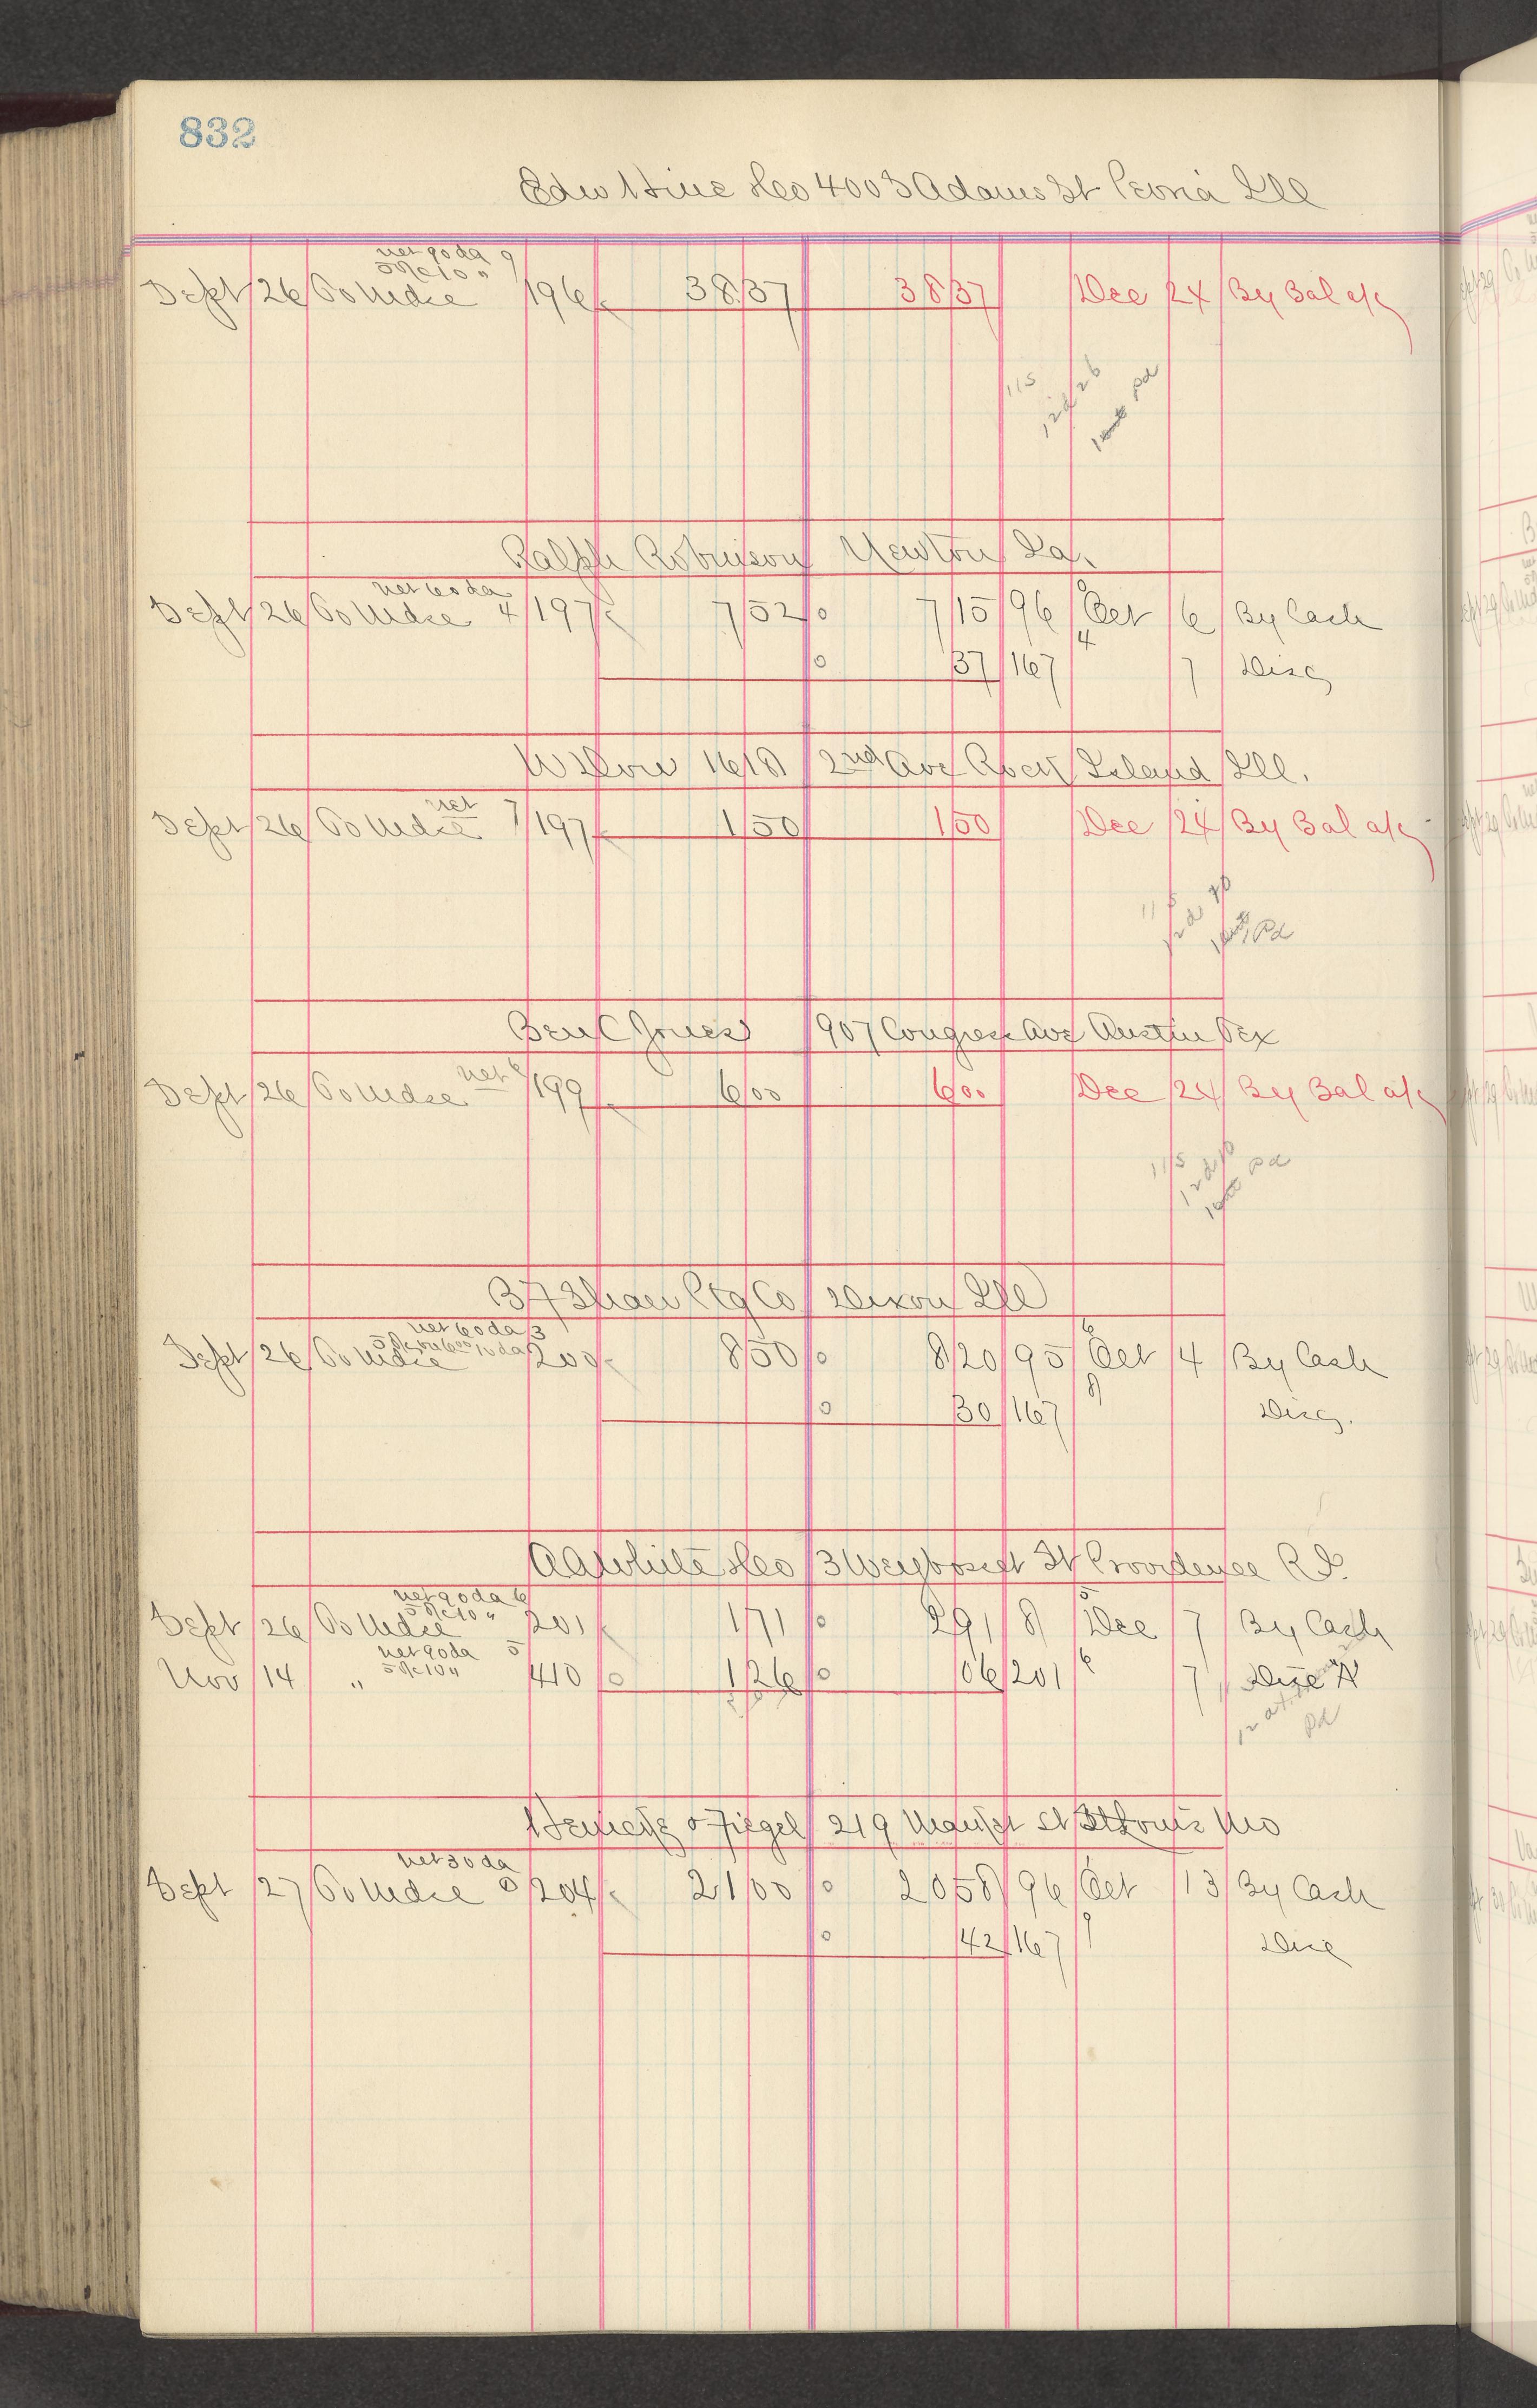 832
Edw Hine &Co 400 S Adams St Peoria Ill
net 90 da 9
5% 10 "
Sept 26 To Mdse 196 38 37 38 37 Dec 24 By Bal a/c
115
pd
Ralph Robinson Newton Ia.
net 60 da
Sept 26 To Mdse 4 197 7 52 0 7 15 96 Oct 6 By Cash
4
0 37 167 7 Disc
1618 2nd Ave Rock Island Ill.
net
Sept 26 To Mdse 7 197 1 50 1 50 Dec 24 By Bal a/c
115
Pd
Ben C Jones 907 Congress Ave Austin Tex
net 6
Sept 26 To Mdse 199 6 00 6 00 Dec 24 By Bal a/c
115
pd
B F Shaw Ptg Co Dixon Ill
net 60 da 3
Sept 26 To Mdse 200 8 50 0 8 20 95 Oct 4 By Cash
8
0 30 167 Disc.
A A White &Co 3 Weybosset St Providence R I.
net 90 da 6
5% 10 "
Sept 26 To Mdse 201 1 71 0 2 91 8 Dec 7 By Cash
net 90 da 5
5% 10 "
Nov 14 " 410 0 1 26 0 06 201 6 7 Disc
pd
219 Market St St Louis Mo
net 30 da
Sept 27 To Mdse 204 21 00 0 20 58 96 Oct 13 By Cash
0 42 167 9 Disc